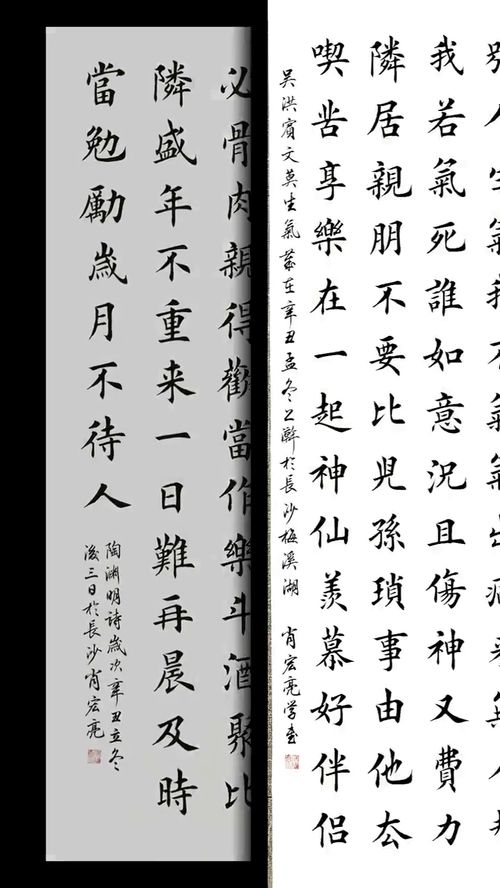 我若氣死誰如意況且傷神又費力
隣居親朋不要比兒孫瑣事由他厺
喫苦享樂在一起神仙羨慕好伴侶
吴洪賓文莫生氣歲在辛丑孟冬上澣於長沙梅溪湖 肖宏亮学書
必骨肉親得歡當作樂斗酒聚比
隣盛年不重来一日難再晨及時
當勉勵歲月不待人
陶渊明詩歲次辛丑立冬
後三日於長沙肖宏亮